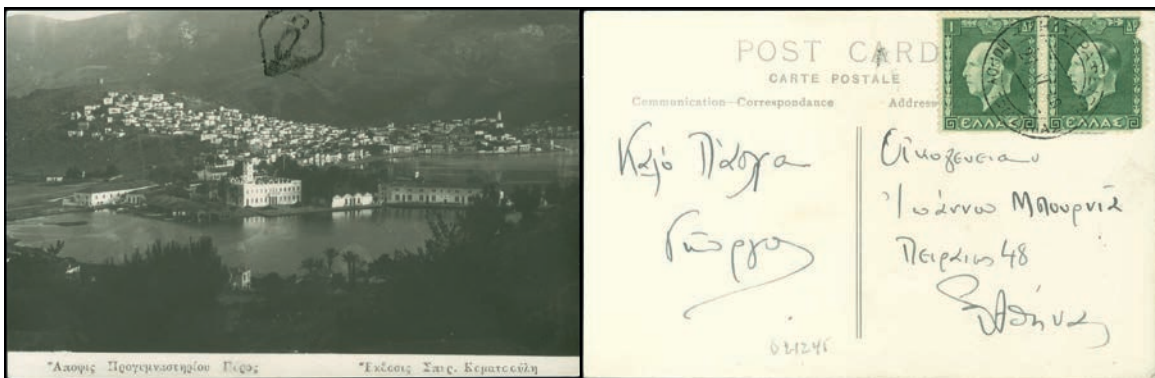 Ἄποψις Προγυμναστηρίου Πόρος
Ἔκδοσις Σπυρ. Κεματσούλη
POST CARD
CARTE POSTALE
Communication—Correspondance
Address
1 ΔΡ
1 ΔΡ
ΕΛΛΑΣ
ΕΛΛΑΣ
Καλό Πάσχα
Γιώργος
Οικογένειαν
Ιωάννου Μπουρνιά
Πειραιώς 48
Αθήνας
021245